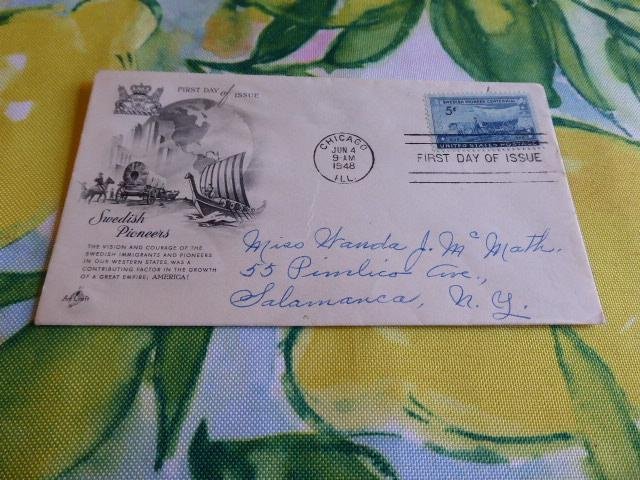 FIRST DAY of ISSUE
Swedish
Pioneers
THE VISION AND COURAGE OF THE
SWEDISH IMMIGRANTS AND PIONEERS
IN OUR WESTERN STATES, WAS A
CONTRIBUTING FACTOR IN THE GROWTH
OF A GREAT EMPIRE; AMERICA!
ArtCraft
CHICAGO
JUN 4
9 AM
1948
ILL.
SWEDISH PIONEER CENTENNIAL
5¢
UNITED STATES POSTAGE
FIRST DAY OF ISSUE
Miss Wanda J. McMath.
55 Pimlico Ave.,
Salamanca, N. Y.